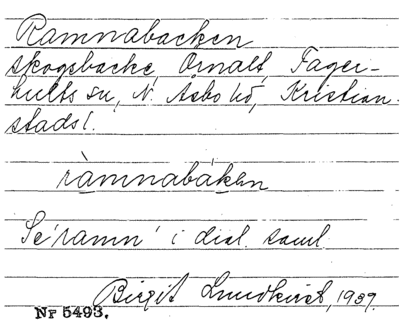 Ramnabacken
skogsbacke, Örnalt, Fager-
hults sn, N. Åsbo hd, Kristian-
stads l.
ràmnabákən
Se 'ramn' i dial. saml.
Birgit Lundkvist, 1937.
Nr 5493.